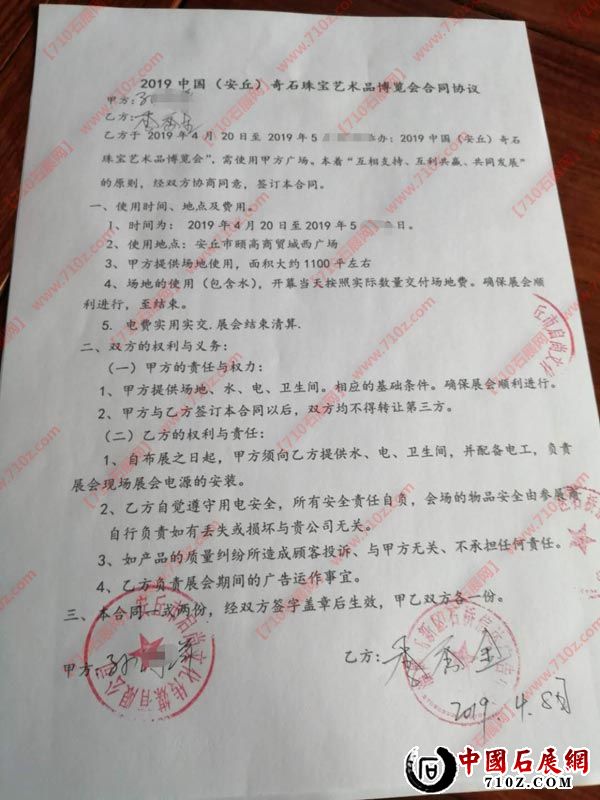 2019 中国（安丘）奇石珠宝艺术品博览会合同协议
甲方:
乙方:
乙方于 2019 年 4 月 20 日至 2019 年 5 办: 2019 中国（安丘）奇石
珠宝艺术品博览会”, 需使用甲方广场。本着“互相支持、互利共赢、共同发展”
的原则，经双方协商同意，签订本合同。
一、使用时间、地点及费用。
1、时间为： 2019 年 4 月 20 日至 2019 年 5 日。
2、使用地点：安丘市颐高商贸城西广场
3、甲方提供场地使用，面积大约 1100 平左右
4、场地的使用（包含水），开幕当天按照实际数量交付场地费。确保展会顺
利进行，至结束。
5. 电费实用实交.展会结束清算.
二、双方的权利与义务:
（一）甲方的责任与权力:
1、甲方提供场地、水、电、卫生间。相应的基础条件。确保展会顺利进行。
2、甲方与乙方签订本合同以后，双方均不得转让第三方。
（二）乙方的权利与责任:
1、自布展之日起，甲方须向乙方提供水、电、卫生间，并配备电工，负责
展会现场展会电源的安装。
2、乙方自觉遵守用电安全，所有安全责任自负，会场的物品安全由参展商
自行负责如有丢失或损坏与贵公司无关。
3、如产品的质量纠纷所造成顾客投诉、与甲方无关、不承担任何责任。
4、乙方负责展会期间的广告运作事宜。
三、本合同一式两份，经双方签字盖章后生效，甲乙双方各一份。
甲方:
乙方:
2019.4.8日
【710石展网】
www.710z.com
中國石展網
710Z.COM